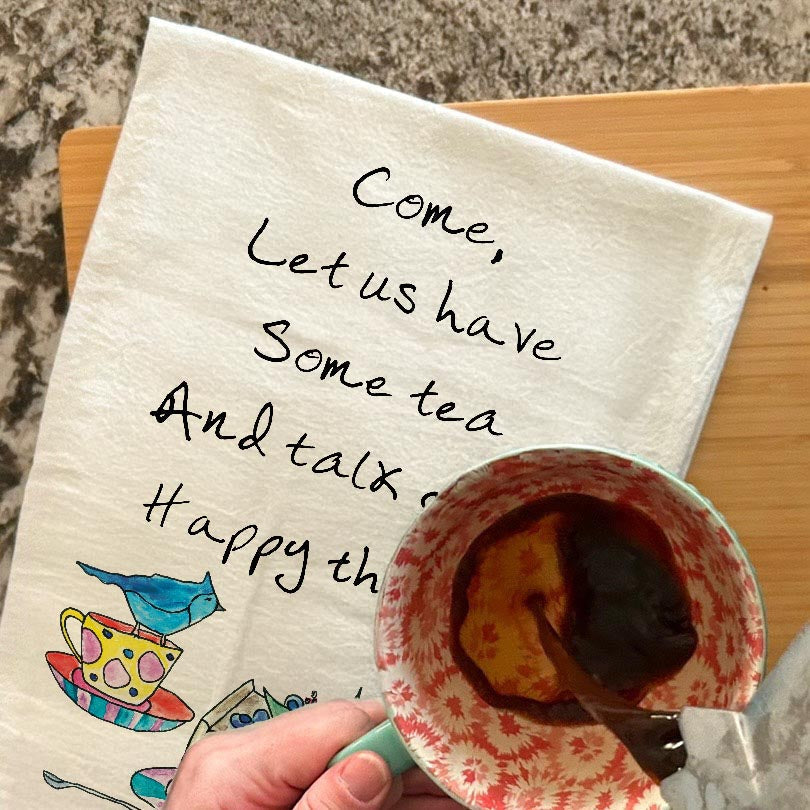 Come,
Let us have
Some tea
And talk
Happy